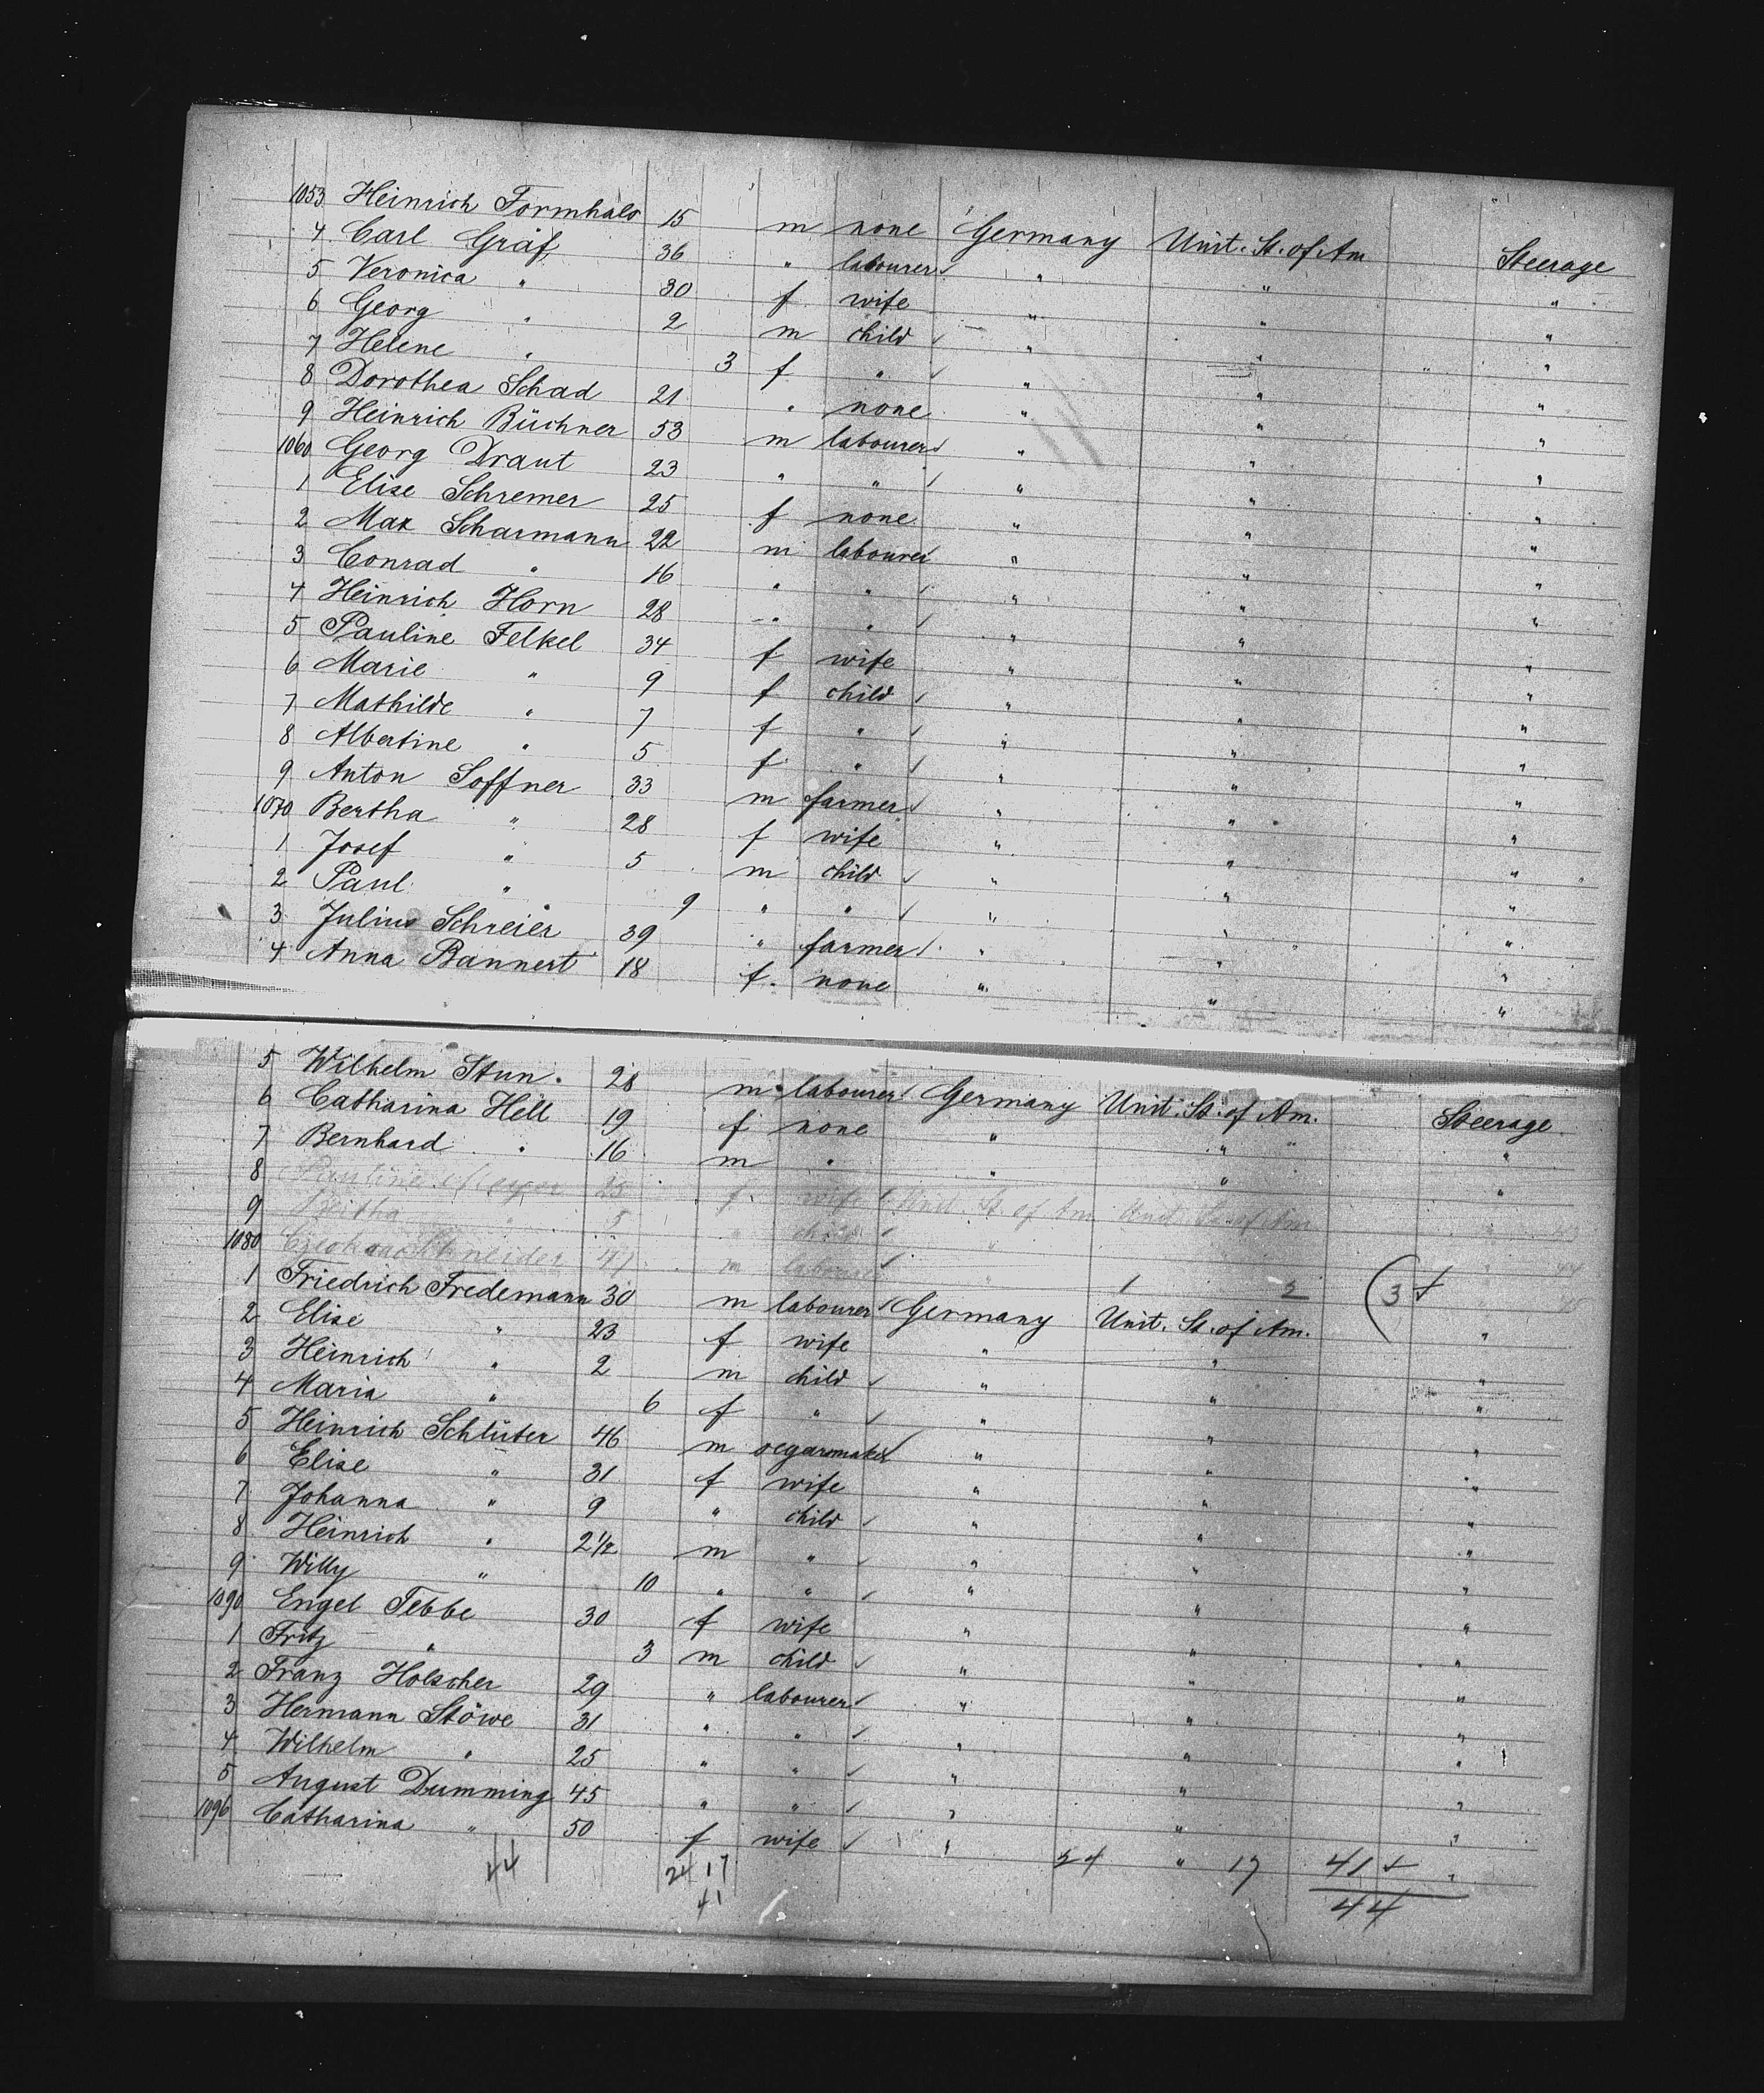 1053 Heinrich Formhals 15 m none Germany Unit. St. of Am Steerage
4 Carl Gräf 36 " labourer " " "
5 Veronica " 30 f wife " " "
6 Georg " 2 m child " " "
7 Helene " 3 f " " " "
8 Dorothea Schad 21 " none " " "
9 Heinrich Büchner 53 m labourer " " "
1060 Georg Draut 23 " " " " "
1 Elise Schremer 25 f none " " "
2 Max Scharmann 22 m labourer " " "
3 Conrad " 16 " " " " "
4 Heinrich Horn 28 " " " " "
5 Pauline Felkel 34 f wife " " "
6 Marie " 9 f child " " "
7 Mathilde " 7 f " " " "
8 Albertine " 5 f " " " "
9 Anton Soffner 33 m farmer " " "
1070 Bertha " 28 f wife " " "
1 Josef " 5 m child " " "
2 Paul " 9 " " " " "
3 Julius Schreier 39 " farmer " " "
4 Anna Bannert 18 f. none " " "
5 Wilhelm Stun. 28 m labourer Germany Unit. St. of Am. Steerage
6 Catharina Hell 19 f none " " "
7 Bernhard " 16 m " " " "
8 Pauline 25 f. wife Unit. St. of Am Unit. St. of Am
9 Bertha " 5 " child "
1080 Schneider 47 m labourer " 1 2 (3
1 Friedrich Fredemann 30 m labourer Germany Unit. St. of Am. "
2 Elise " 23 f wife " " "
3 Heinrich " 2 m child " " "
4 Maria " 6 f " " " "
5 Heinrich Schlüter 46 m segarmaker " " "
6 Elise " 31 f wife " " "
7 Johanna " 9 " child " " "
8 Heinrich " 2 1/2 m " " " "
9 Willy " 10 " " " " "
1090 Engel Tebbe 30 f wife " " "
1 Fritz " 3 m child " " "
2 Franz Holscher 29 " labourer " " "
3 Hermann Stöwe 31 " " " " "
4 Wilhelm " 25 " " " " "
5 August Dumming 45 " " " " "
1096 Catharina " 50 f wife " " "
44 24 17 24 17 41
41 44